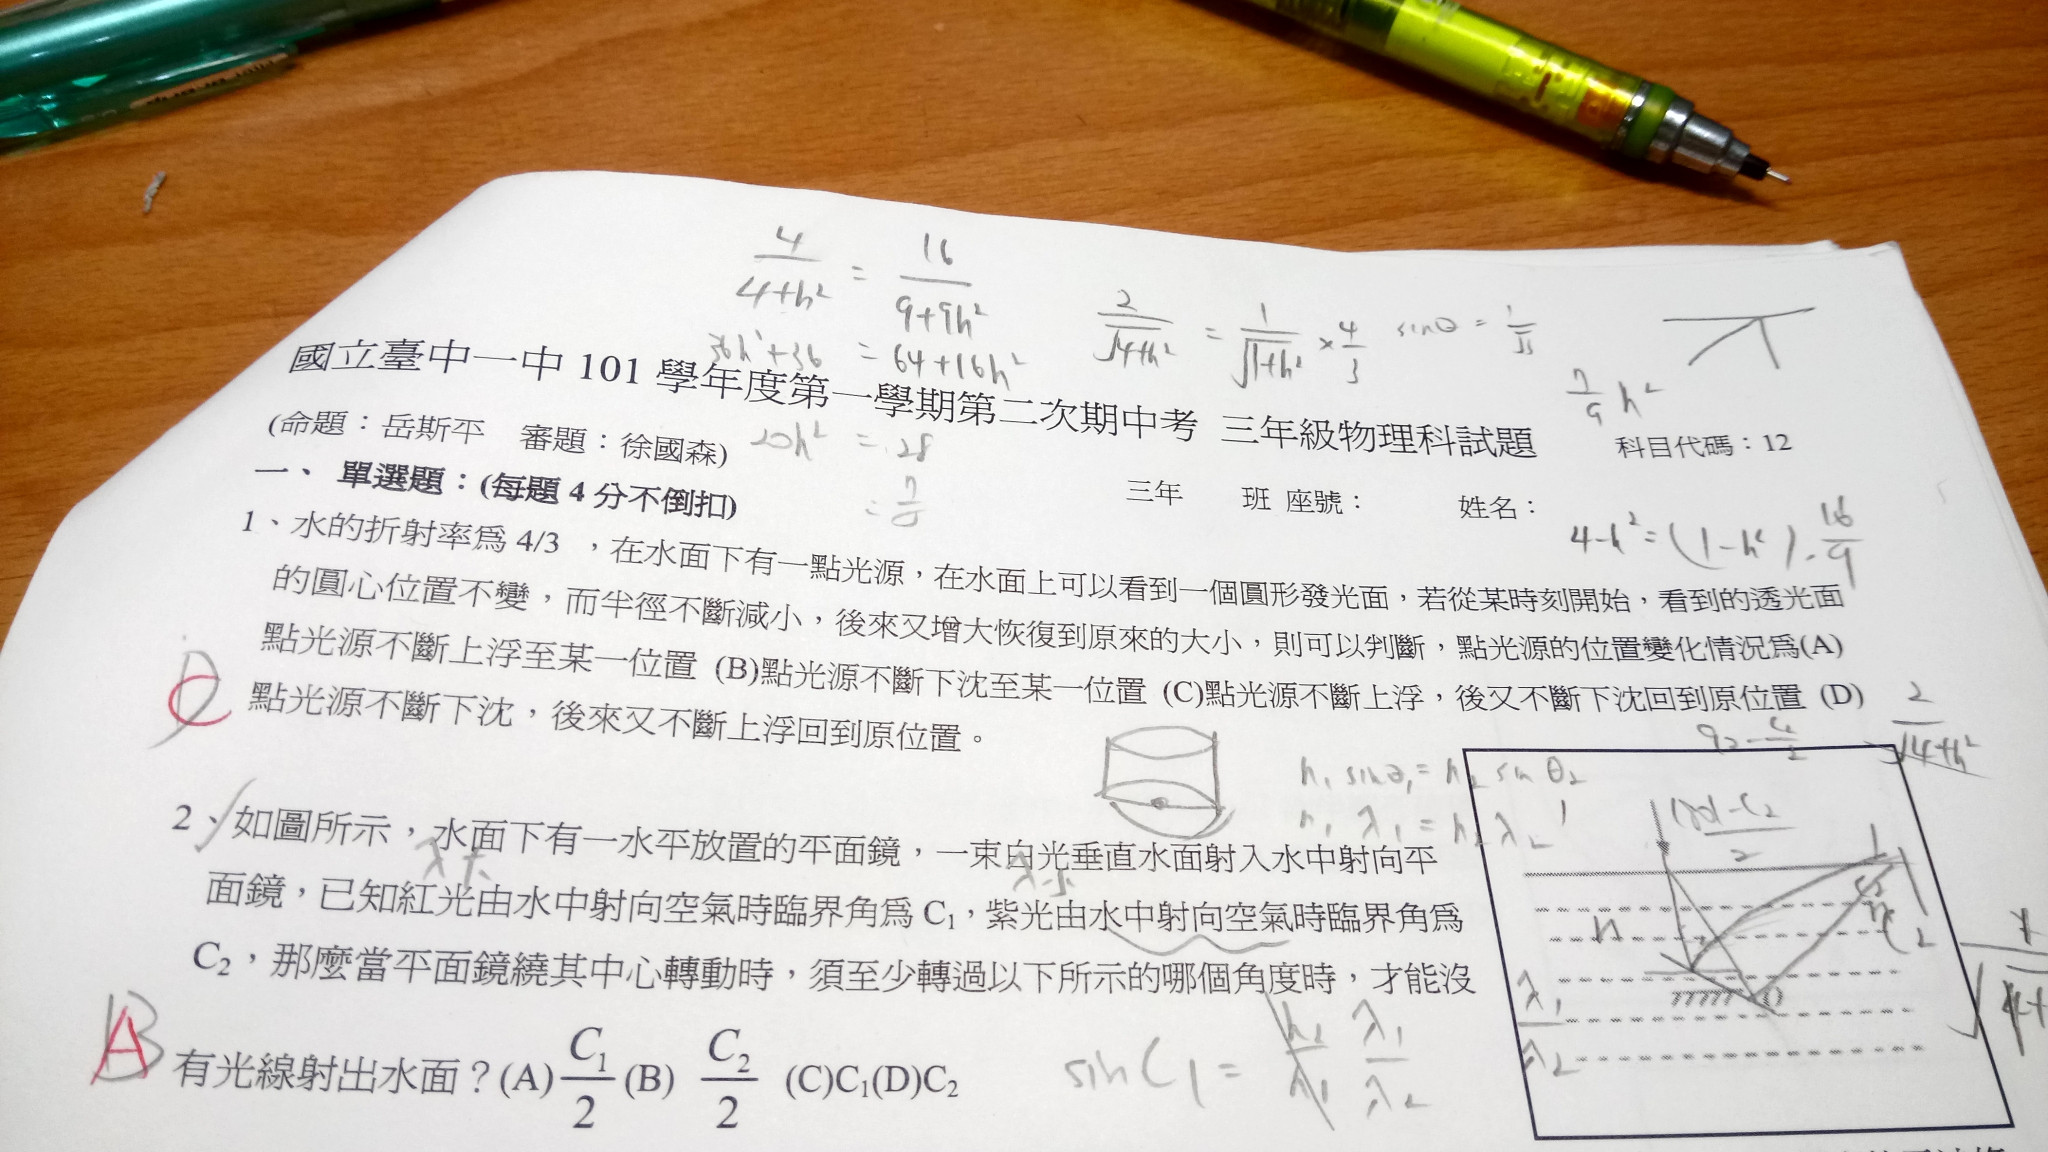 4/(4+h²) = 16/(9+9h²)
2/√(4+h²) = 1/√(1+h²) × 4/3
36h²+36 = 64+16h²
7/9 h²
國立臺中一中 101 學年度第一學期第二次期中考 三年級物理科試題
(命題：岳斯平 審題：徐國森) 科目代碼：12
20h² = 28
一、 單選題：(每題 4 分不倒扣)
三年 班 座號： 姓名：
4-h² = (1-h²)·16/9
1、水的折射率為 4/3 ，在水面下有一點光源，在水面上可以看到一個圓形發光面，若從某時刻開始，看到的透光面
的圓心位置不變，而半徑不斷減小，後來又增大恢復到原來的大小，則可以判斷，點光源的位置變化情況為(A)
點光源不斷上浮至某一位置 (B)點光源不斷下沈至某一位置 (C)點光源不斷上浮，後又不斷下沈回到原位置 (D)
點光源不斷下沈，後來又不斷上浮回到原位置。
D
C
2/√(4+h²)
n₁ sinθ₁ = n₂ sinθ₂
n₁ λ₁ = n₂ λ₂
2、如圖所示，水面下有一水平放置的平面鏡，一束白光垂直水面射入水中射向平
面鏡，已知紅光由水中射向空氣時臨界角為 C₁，紫光由水中射向空氣時臨界角為
C₂，那麼當平面鏡繞其中心轉動時，須至少轉過以下所示的哪個角度時，才能沒
有光線射出水面？(A) C₁/2 (B) C₂/2 (C)C₁(D)C₂
B
A
sin C₁ = n₂/n₁ λ₁/λ₂
λ₁/λ₂